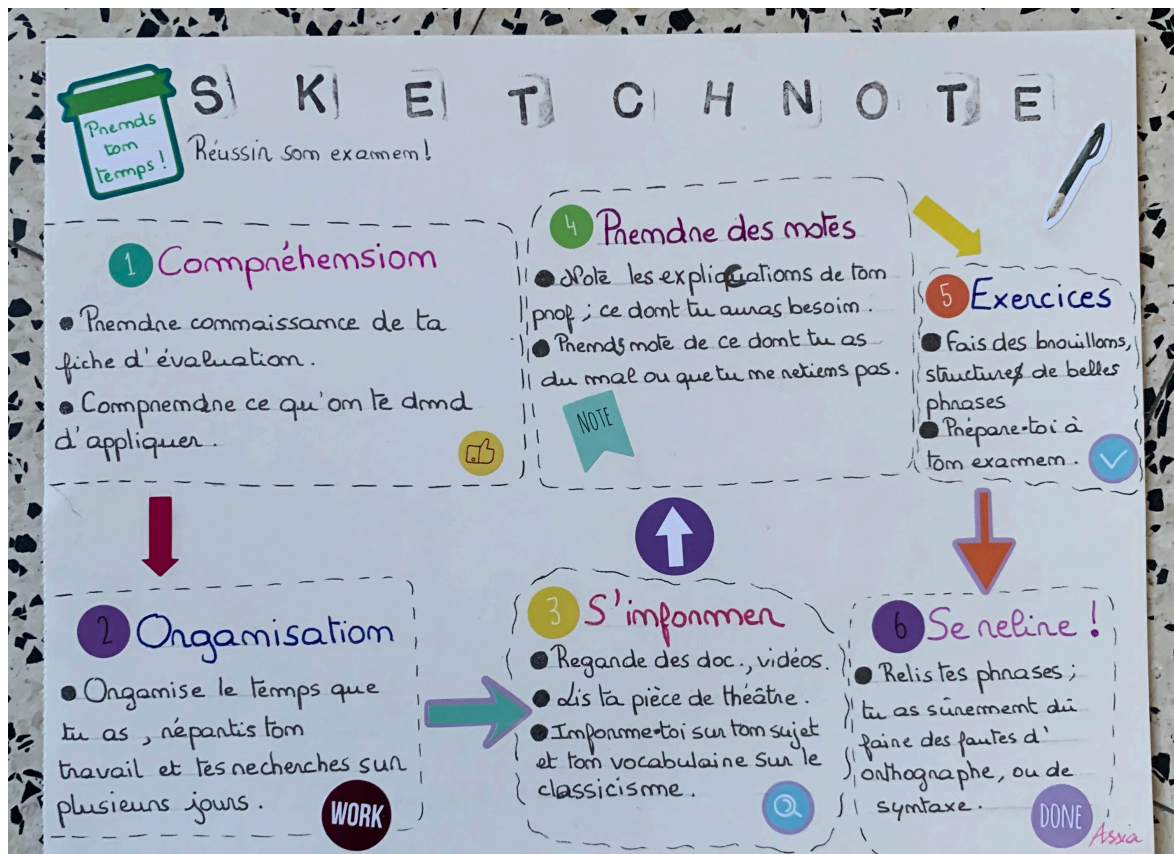 SKETCHNOTE
Prends
ton
temps !
Réussir son examen !
1 Compréhension
• Prendre connaissance de ta
fiche d'évaluation.
• Comprendre ce qu'on te dmd
d'appliquer.
2 Organisation
• Organise le temps que
tu as, répartis ton
travail et tes recherches sur
plusieurs jours.
WORK
3 S'informer
• Regarde des doc., vidéos.
• Lis ta pièce de théâtre.
• Informe-toi sur ton sujet
et ton vocabulaire sur le
classicisme.
4 Prendre des notes
• Note les explications de ton
prof ; ce dont tu auras besoin.
• Prends note de ce dont tu as
du mal ou que tu ne retiens pas.
NOTE
5 Exercices
• Fais des brouillons,
structures de belles
phrases
• Prépare-toi à
ton examen.
6 Se relire !
• Relis tes phrases ;
tu as sûrement dû
faire des fautes d'
orthographe, ou de
syntaxe.
DONE
Assia